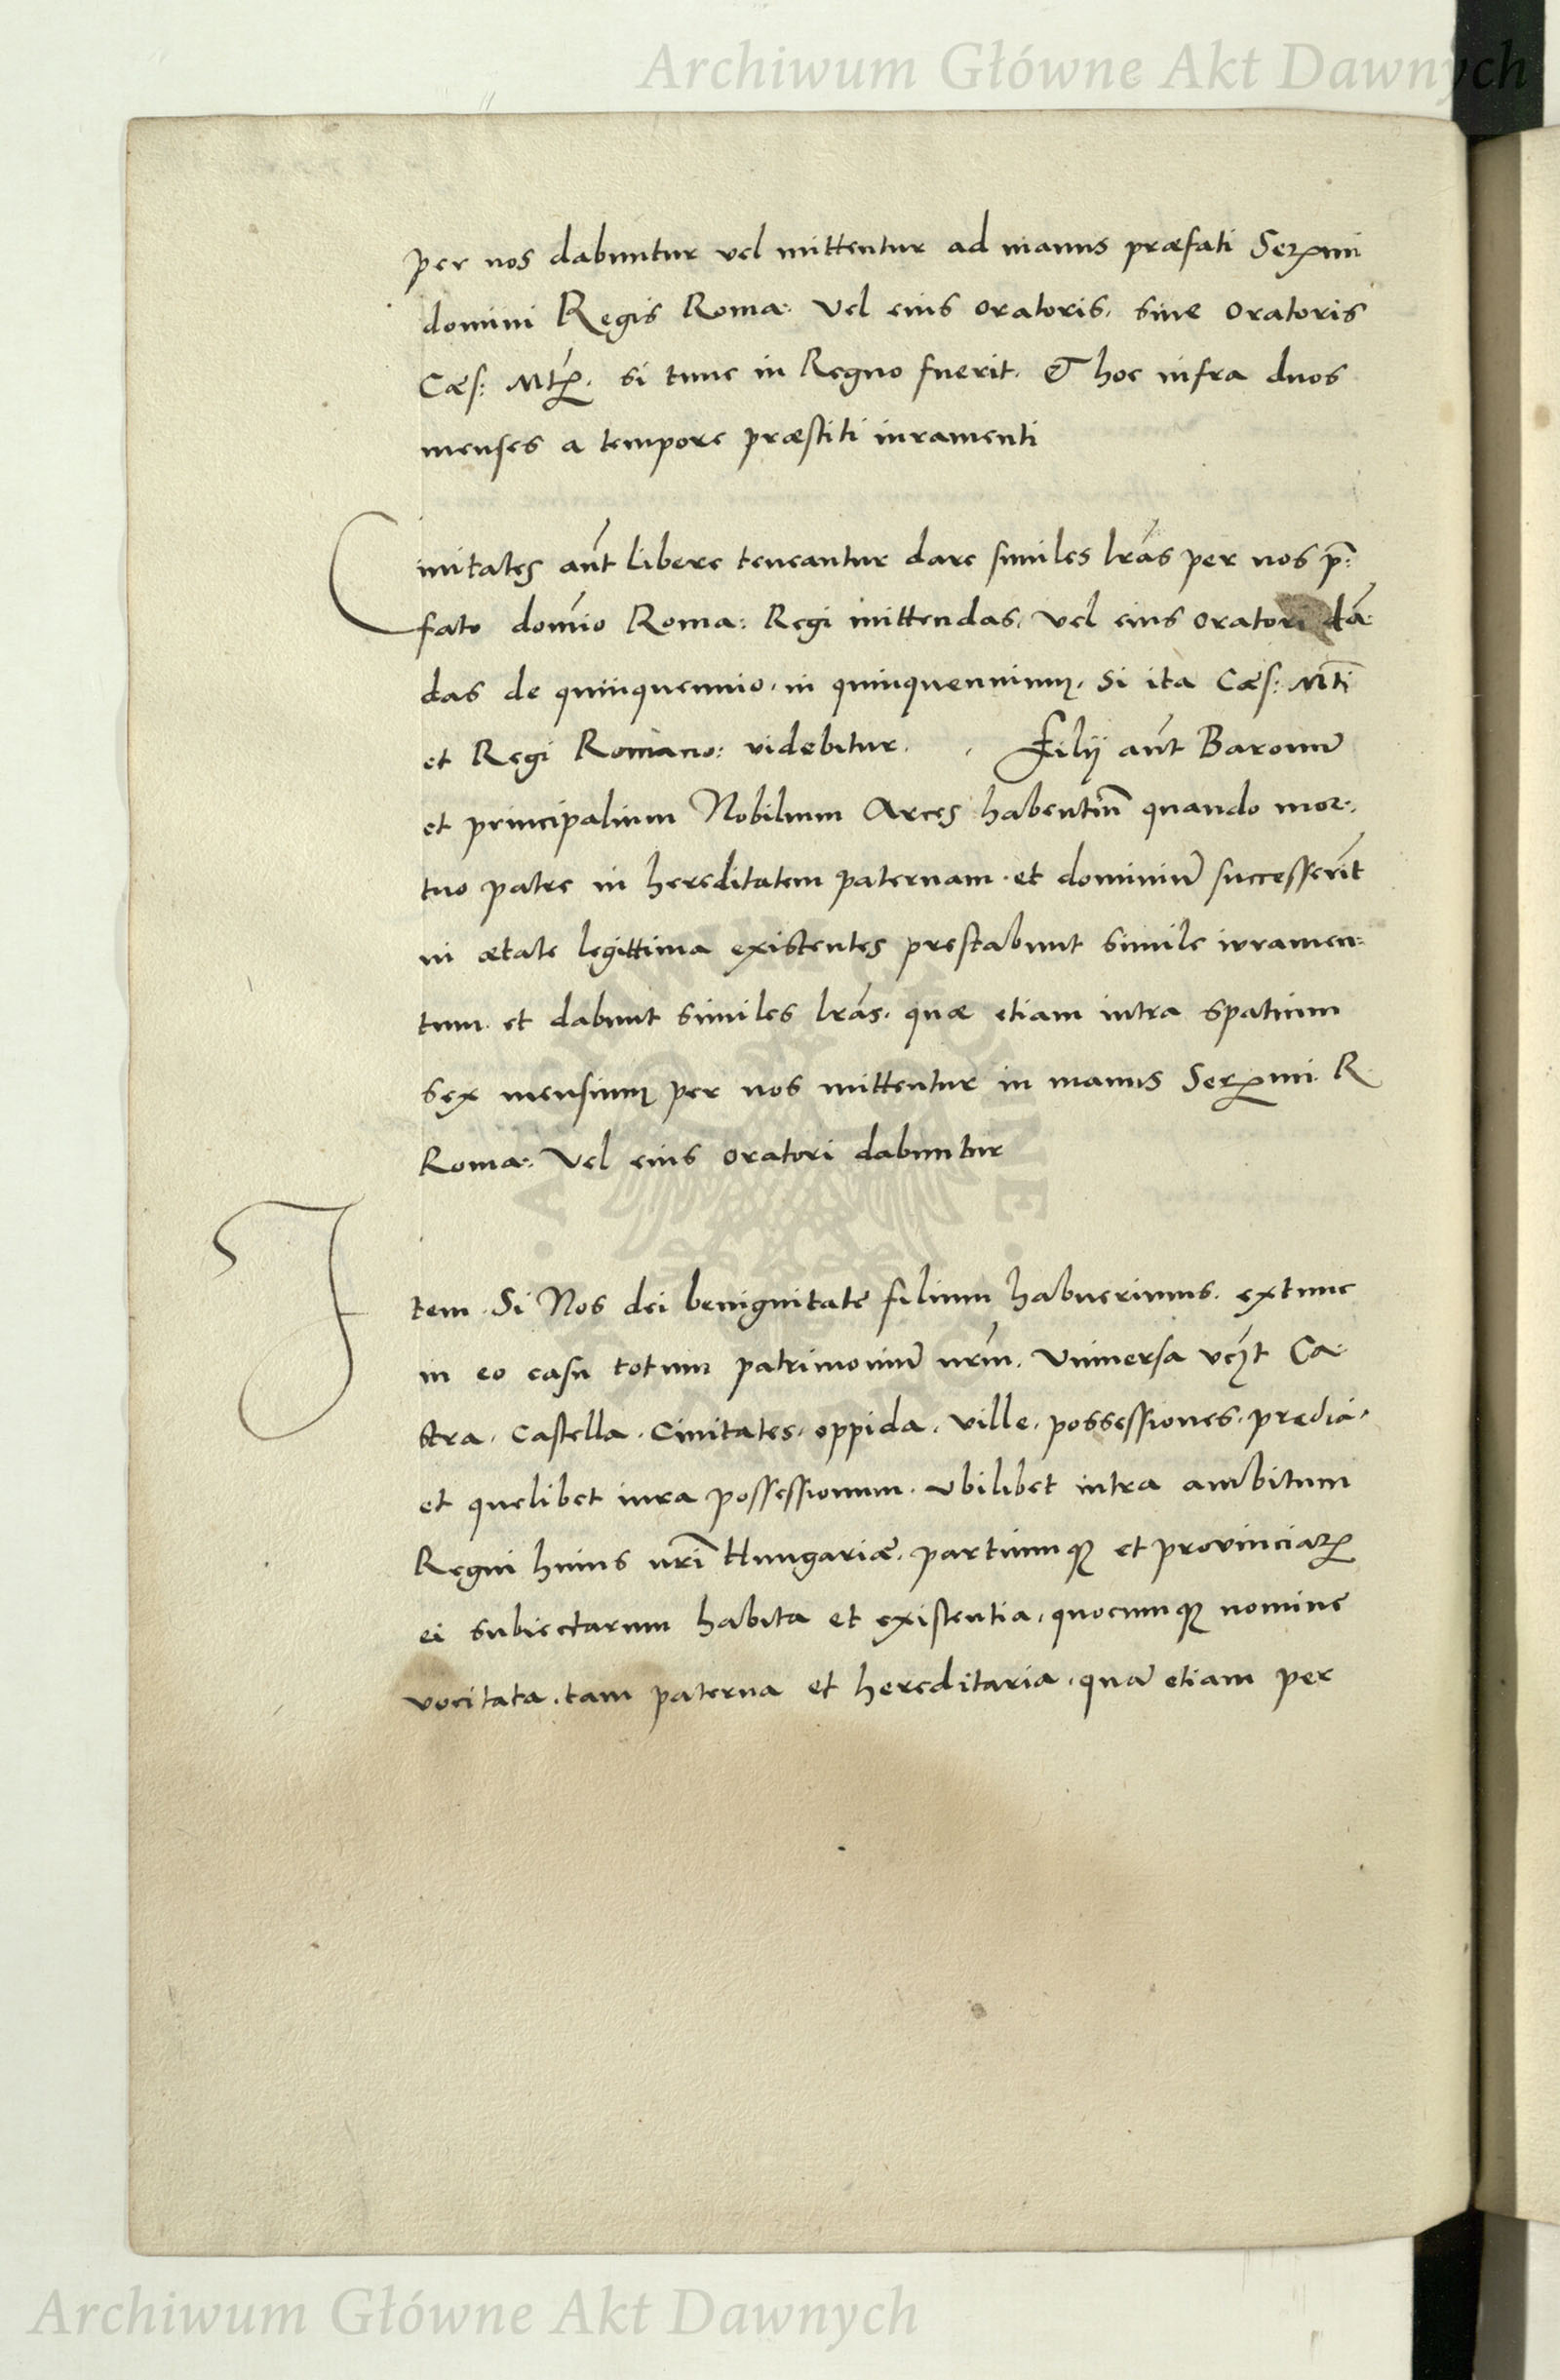 Archiwum Główne Akt Dawnych
per nos dabuntur vel mittentur ad manus præfati Serꝫmi
domini Regis Roma: Vel eius oratoris, siue oratoris
Cæs: Mtꝭ. si tunc in Regno fuerit. & hoc infra duos
menses a tempore præstiti iuramenti
Ciuitates aūt libere teneantur dare similes lr̃as per nos p̄:
fato domīo Roma: Regi mittendas, vel eius oratori dā:
das de quinquennio in quinquennium, Si ita Cæs: Mti
et Regi Romano: videbitur. Filij aūt Baronū
et principalium Nobilium Arces habentiū quando mor:
tuo patre in hereditatem paternam et dominiū successerīt
in ætate legittima existentes prestabunt simile iuramen:
tum et dabunt similes lr̃as, quæ etiam intra spatium
sex mensium per nos mittentur in manus Serꝫmi R
Roma: Vel eius oratori dabuntur
Item Si Nos dei benignitate filium habuerimus, extunc
in eo casu totum patrimoniū nr̃m. Vniuersa vcꝫt Ca:
stra. Castella. Ciuitates. oppida. Ville. possessiones. predia.
et quelibet iura possessionum. Vbilibet intra ambitum
Regni huius nr̃i Hungariæ, partiumqꝫ et prouinciaꝝ
ei subiectarum habita et existentia, quocumqꝫ nomine
vocitata, tam paterna et hereditaria, quā etiam per
Archiwum Główne Akt Dawnych